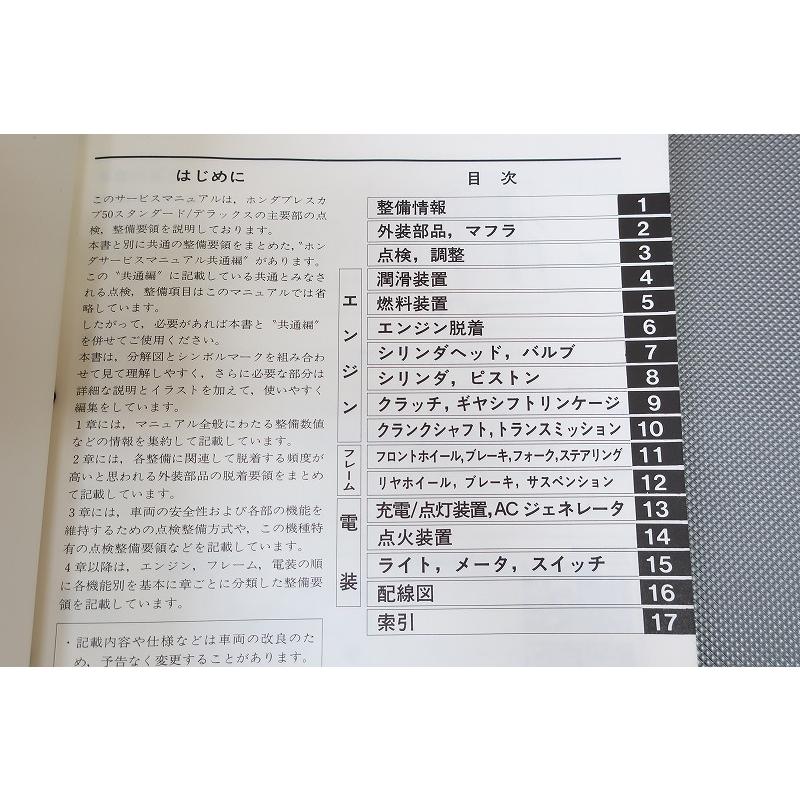 はじめに
このサービスマニュアルは，ホンダプレスカ
ブ50スタンダード/デラックスの主要部の点
検，整備要領を説明しております。
本書と別に共通の整備要領をまとめた，〝ホン
ダサービスマニュアル共通編〞があります。
この〝共通編〞に記載している共通とみなさ
れる点検，整備項目はこのマニュアルでは省
略しています。
したがって，必要があれば本書と〝共通編〞
を併せてご使用ください。
本書は，分解図とシンボルマークを組み合わ
せて見て理解しやすく，さらに必要な部分は
詳細な説明とイラストを加えて，使いやすく
編集をしています。
1章には，マニュアル全般にわたる整備数値
などの情報を集約して記載しています。
2章には，各整備に関連して脱着する頻度が
高いと思われる外装部品の脱着要領をまとめ
て記載しています。
3章には，車両の安全性および各部の機能を
維持するための点検整備方式や，この機種特
有の点検整備要領などを記載しています。
4章以降は，エンジン，フレーム，電装の順
に各機能別を基本に章ごとに分類した整備要
領を記載しています。
・記載内容や仕様などは車両の改良のた
め，予告なく変更することがあります。
目次
整備情報 1
外装部品，マフラ 2
点検，調整 3
エンジン
潤滑装置 4
燃料装置 5
エンジン脱着 6
シリンダヘッド，バルブ 7
シリンダ，ピストン 8
クラッチ，ギヤシフトリンケージ 9
クランクシャフト，トランスミッション 10
フレーム
フロントホイール，ブレーキ，フォーク，ステアリング 11
リヤホイール，ブレーキ，サスペンション 12
電装
充電/点灯装置，ACジェネレータ 13
点火装置 14
ライト，メータ，スイッチ 15
配線図 16
索引 17